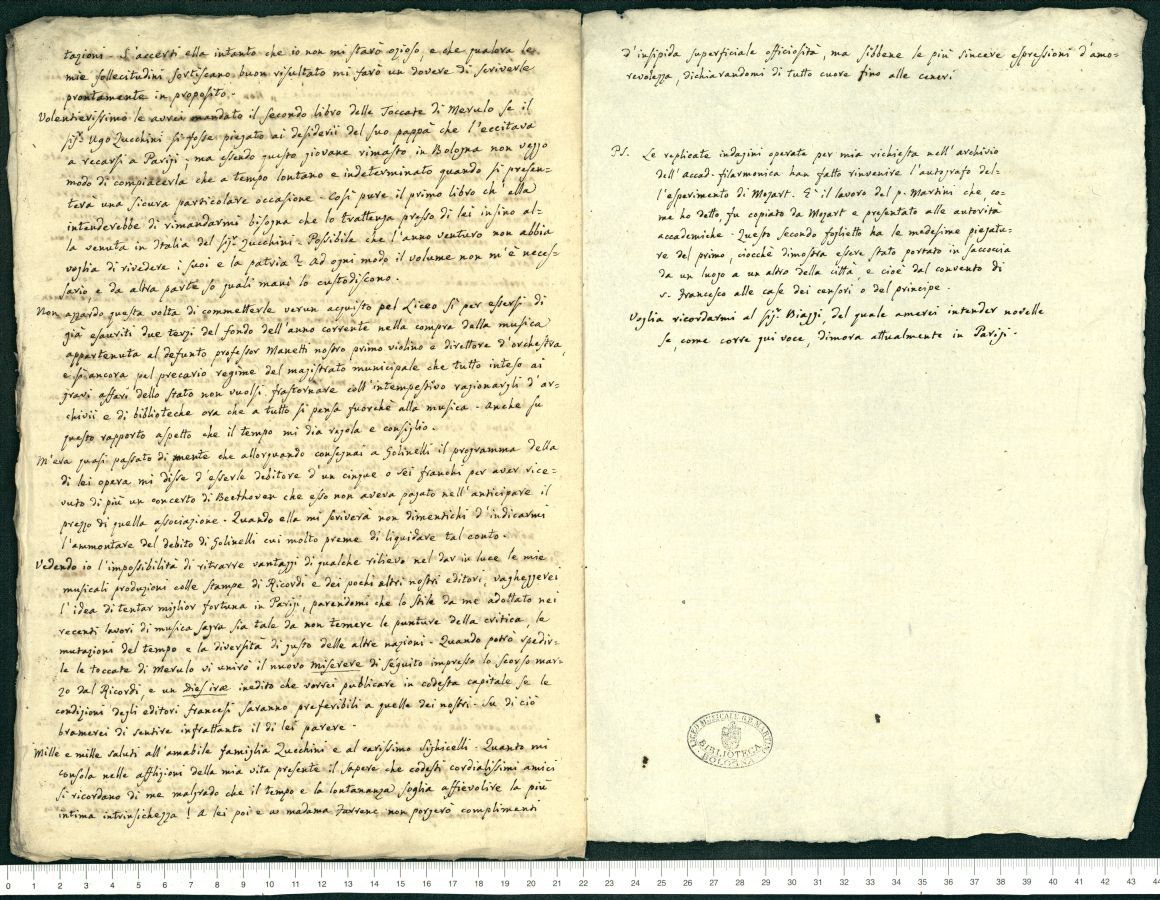 tazioni. S'accerti ella intanto che io non mi starò ozioso, e che qualora le
mie sollecitudini sortiscano buon risultato mi farò un dovere di scriverle
prontamente in proposito.
Volentierissimo le avrei mandato il secondo libro delle Toccate di Merulo se il
sigr. Ugo Zucchini si fosse piegato ai desiderii del suo pappà che l'eccitava
a recarsi a Parigi; ma essendo questo giovane rimasto in Bologna non veggo
modo di compiacerla che a tempo lontano e indeterminato quando si presen-
terà una sicura particolare occasione. Così pure il primo libro ch'ella
intenderebbe di rimandarmi bisogna che lo trattenga presso di lei insino al-
la venuta in Italia del sigr. Zucchini. Possibile che l'anno venturo non abbia
voglia di rivedere i suoi e la patria? Ad ogni modo il volume non m'è neces-
sario e da altra parte so quali mani lo custodiscono.
Non azzardo questa volta di commetterle verun acquisto pel Liceo sì per essersi di
già esauriti due terzi del fondo dell'anno corrente nella compra della musica
appartenuta al defunto professor Manetti nostro primo violino e direttore d'orchestra,
e sì ancora pel precario regime del magistrato municipale che tutto inteso ai
gravi affari dello stato non vuolsi frastornare coll'intempestivo ragionargli d'ar-
chivii e di biblioteche ora che a tutto si pensa fuorchè alla musica. Anche su
questo rapporto aspetto che il tempo mi dia regola e consiglio.
M'era quasi passato di mente che allorquando consegnai a Golinelli il programma della
di lei opera mi disse d'esserle debitore d'un cinque o sei franchi per aver rice-
vuto di più un concerto di Beethoven che esso non aveva pagato nell'anticipare il
prezzo di quella associazione. Quando ella mi scriverà non dimentichi d'indicarmi
l'ammontare del debito di Golinelli cui molto preme di liquidare tal conto.
Vedendo io l'impossibilità di ritrarre vantaggi di qualche rilievo nel dar in luce le mie
musicali produzioni colle stampe di Ricordi e dei pochi altri nostri editori, vagheggerei
l'idea di tentar miglior fortuna in Parigi, parendomi che lo stile da me adottato nei
recenti lavori di musica sagra sia tale da non temere le punture della critica, le
mutazioni del tempo e la diversità di gusto delle altre nazioni. Quando potrò spedir-
le le toccate di Merulo vi unirò il nuovo Miserere di seguito impresso lo scorso mar-
zo dal Ricordi, e un Dies irae inedito che vorrei publicare in codesta capitale se le
condizioni degli editori francesi saranno preferibili a quelle dei nostri. Su di ciò
bramerei di sentire infrattanto il di lei parere.
Mille e mille saluti all'amabile famiglia Zucchini e al carissimo Sighicelli. Quanto mi
consola nelle afflizioni della mia vita presente il sapere che codesti cordialissimi amici
si ricordano di me malgrado che il tempo e la lontananza soglia affievolire la più
intima intrinsichezza! A lei poi e a madama Farrenc non porgerò complimenti
d'insipida superficiale officiosità, ma sibbene le più sincere espressioni d'amo-
revolezza, dichiarandomi di tutto cuore fino alle ceneri
P.S. Le replicate indagini operate per mia richiesta nell'archivio
dell'accad. filarmonica han fatto rinvenire l'autografo del-
l'esperimento di Mozart. E il lavoro del p. Martini che co-
me ho detto, fu copiato da Mozart e presentato alle autorità
accademiche. Questo secondo foglietto ha le medesime piegatu-
re del primo, ciocchè dimostra essere stato portato in saccoccia
da un luogo a un altro della città, e cioè dal convento di
S. Francesco alle case dei censori o del principe.
Voglia ricordarmi al sigr. Biaggi, del quale amerei intender novelle
se, come corre qui voce, dimora attualmente in Parigi.
LICEO MUSICALE G.B. MARTINI
BIBLIOTECA
BOLOGNA
0 1 2 3 4 5 6 7 8 9 10 11 12 13 14 15 16 17 18 19 20 21 22 23 24 25 26 27 28 29 30 31 32 33 34 35 36 37 38 39 40 41 42 43 44